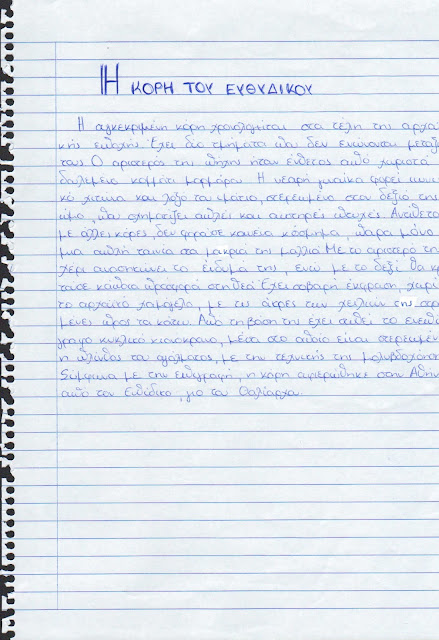 Η ΚΟΡΗ ΤΟΥ ΕΥΘΥΔΙΚΟΥ
Η συγκεκριμένη κόρη χρονολογείται στα τέλη της αρχαϊ
κής εποχής. Έχει δύο τμήματα που δεν ενώνονται μεταξύ
τους. Ο αριστερός της πήχης ήταν ένθετος από χωριστά
δουλεμένο κομμάτι μαρμάρου. Η νεαρή γυναίκα φορεί
κό χιτώνα και λοξό το ιμάτιο, στερεωμένο στον δεξιό της
ώμο, που σχηματίζει απλές και αυστηρές πτυχές. Αντίθετα
με άλλες κόρες, δεν φοράσε κανένα κόσμημα, παρά μόνο
μια απλή ταινία στα μακριά της μαλλιά. Με το αριστερό της
χέρι ανασήκωνε το ένδυμά της, ενώ με το δεξί θα κρα
τούσε κάποια προσφορά στη θεά. Έχει σοβαρή έκφραση, χωρίς
το αρχαϊκό χαμόγελο, με τις άκρες των χειλιών της στραμ
μένες προς τα κάτω. Από τη βάση της έχει σωθεί το ενεπί
γραφο κυκλικό κιονόκρανο, μέσα στο οποίο είναι στερεωμέν
η πλίνθος του αγάλματος, με την τεχνική της μολυβδοχόησης
Σύμφωνα με την επιγραφή, η κόρη αφιερώθηκε στην Αθην
από τον Ευθύδικο, γιο του Θαλίαρχου.